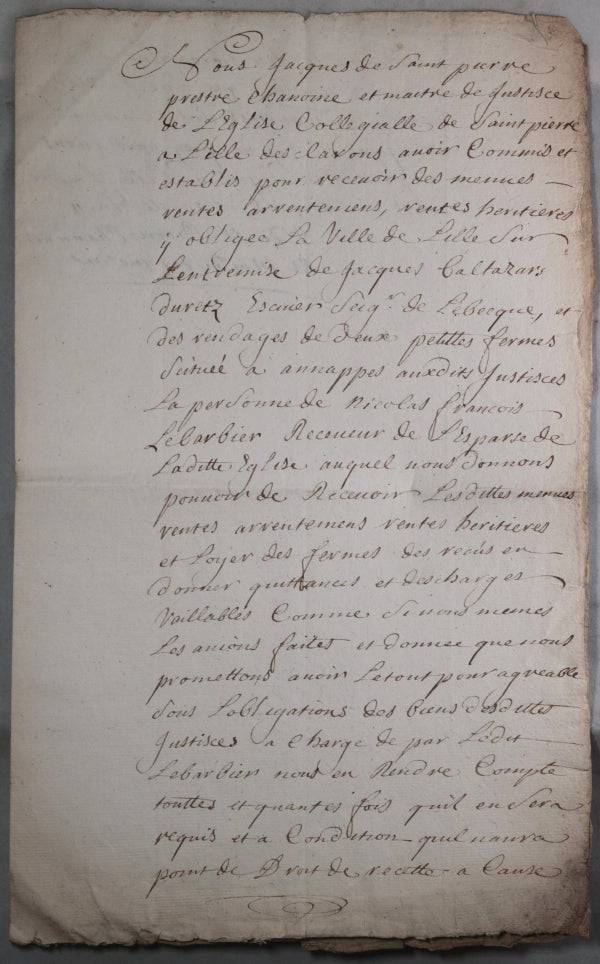 Nous Jacques de Saint pierre
prestre Chanoine et maitre de Justisce
de L'Eglise Collegialle de Saint pierre
a Lille desclarons auoir Commis et
establis pour receuoir des menues
rentes arrentemens, rentes heritieres
y obligee La Ville de Lille Sur
L'entremise de Jacques Baltazars
duretz Escuier Seigr. de Lebecque, et
des rendages de Deux petittes fermes
Scituéé a annappes auxdits Justisces
La personne de Nicolas françois
Lebarbier Receueur de L'Esparse de
Laditte Eglise auquel nous Donnons
pouuoir de Receuoir Lesdittes menues
rentes arrentemens rentes heritieres
et Loyer des fermes des recús en
Donner quittances et descharges
Vaillables Comme Si nous memes
Les auions faites et donnee que nous
promettons auoir Letout pour agreable
Sous Lobligations des biens desdittes
Justisces a Charge de par Ledit
Lebarbier nous en Rendre Compte
touttes et quantes fois quil en Sera
requis et a Condition quil naura
point de Droit de recette a Cause